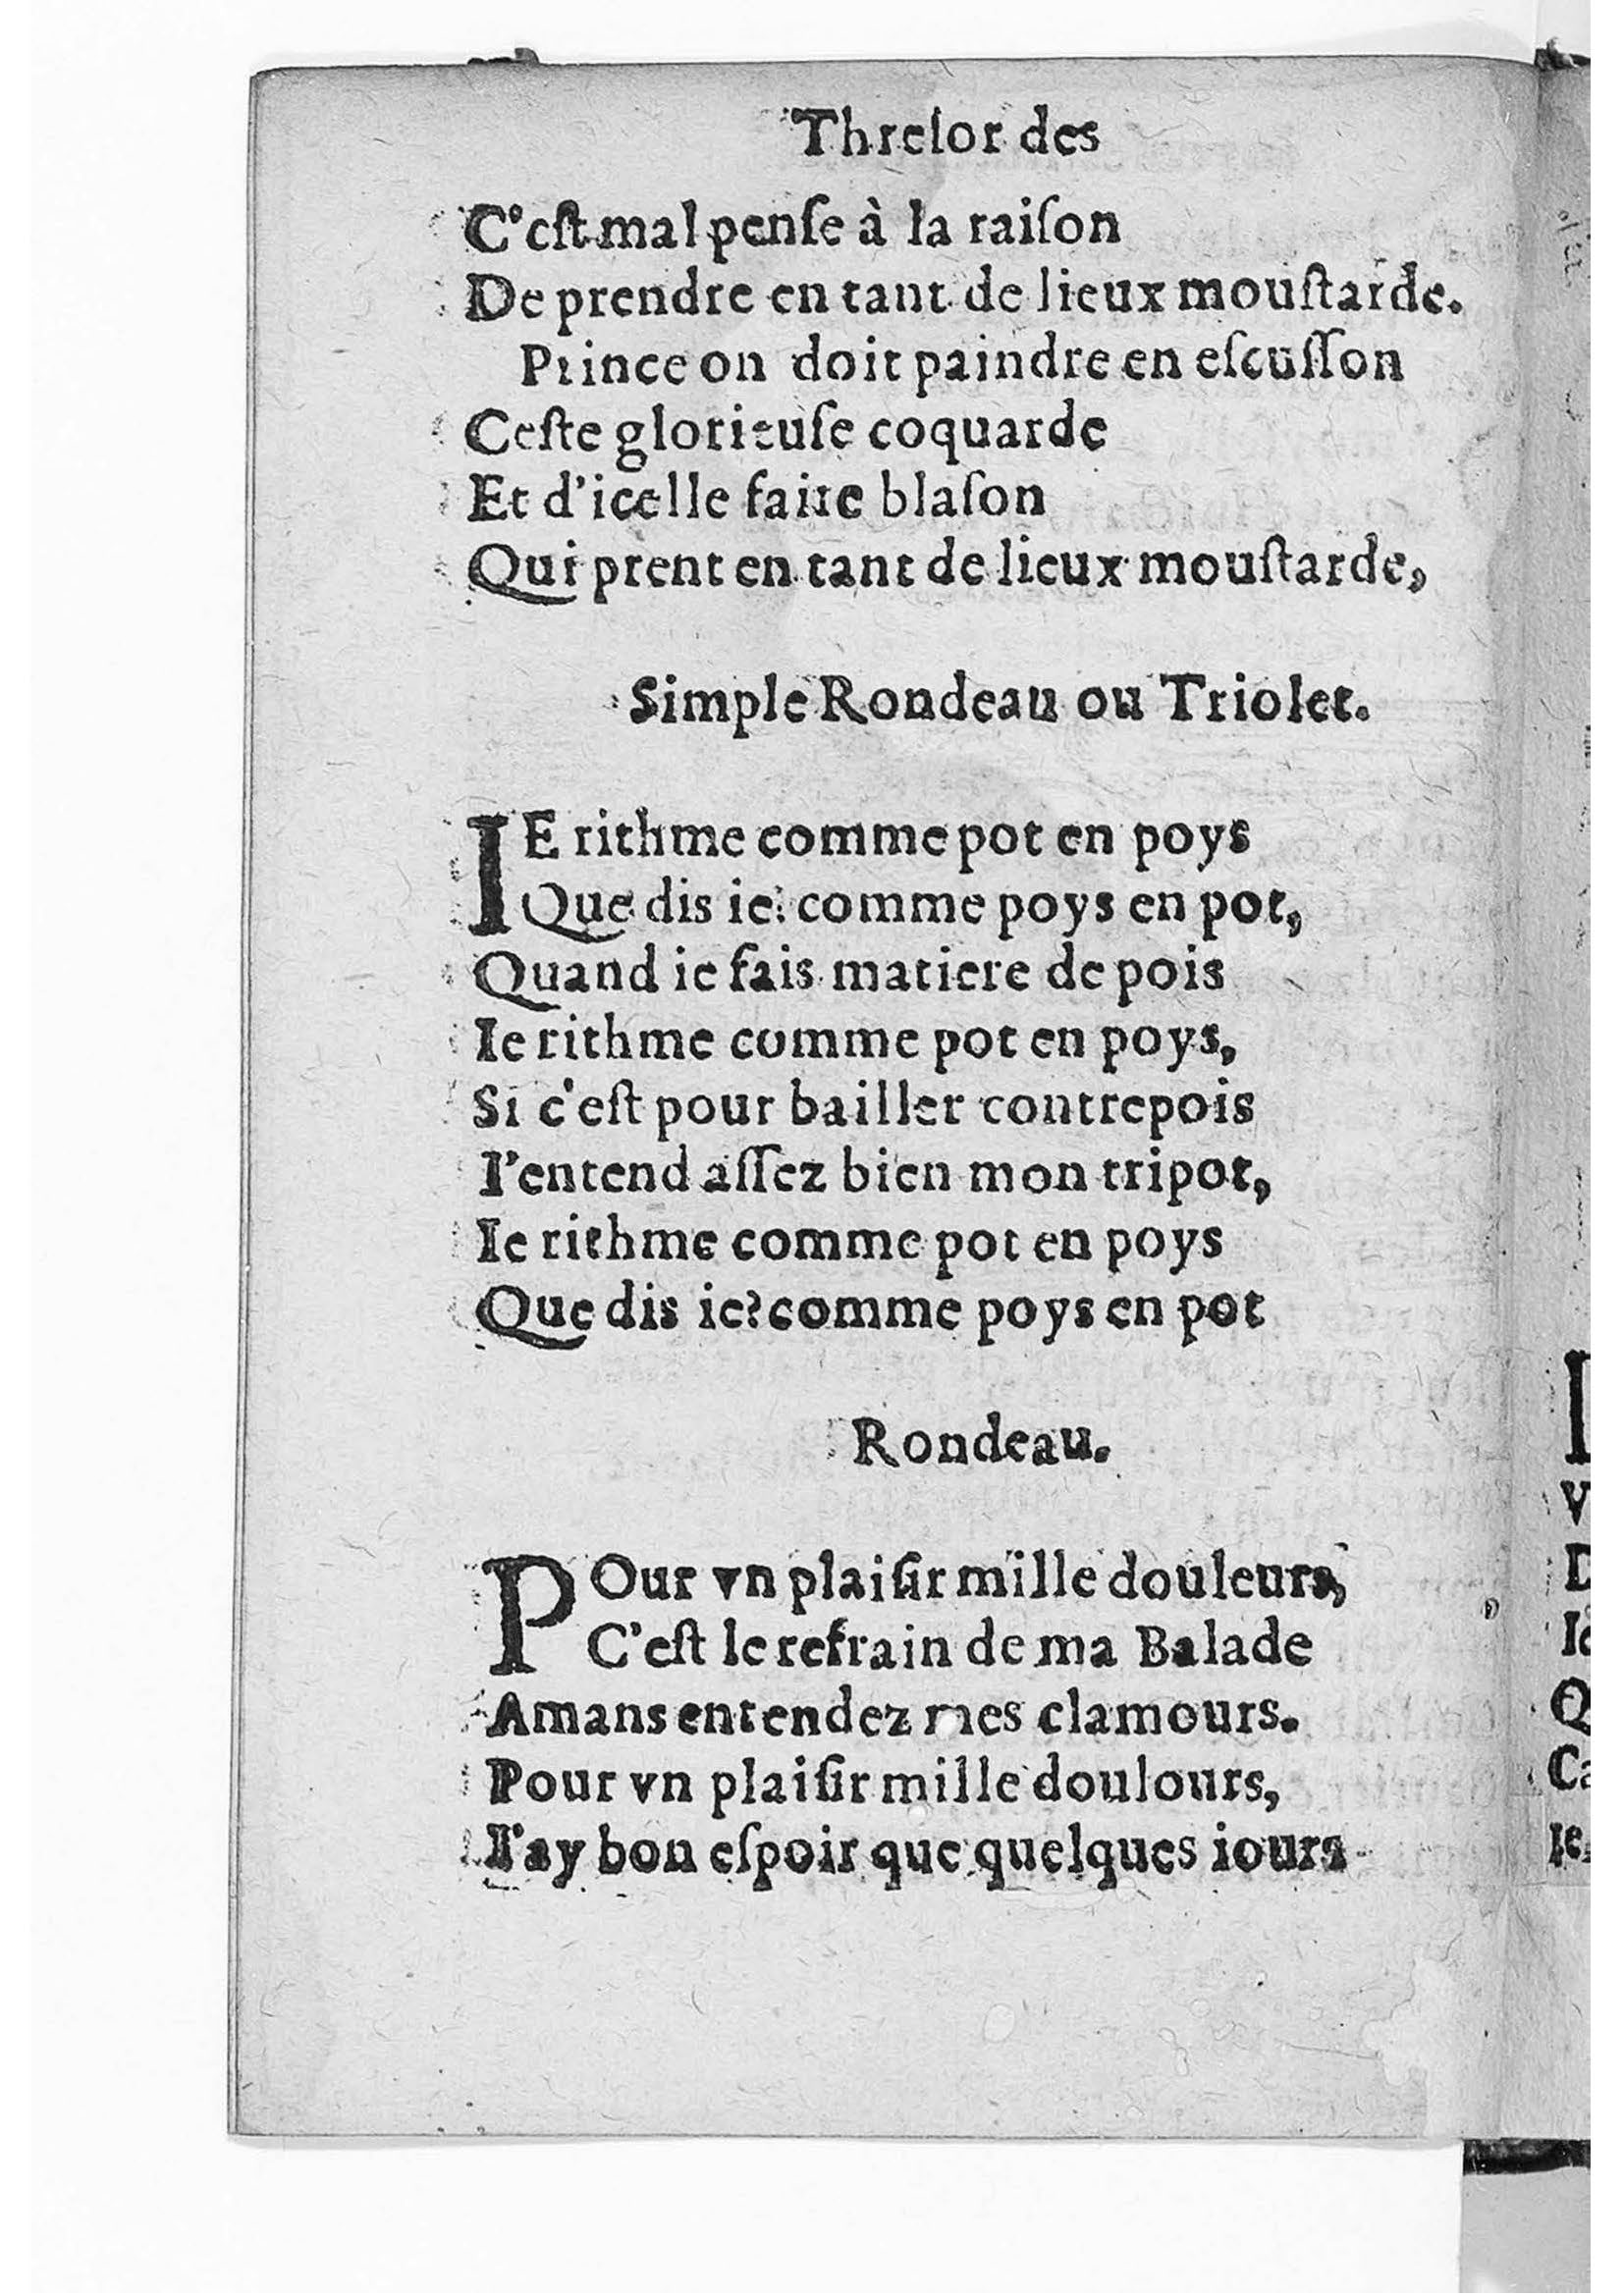 Threſor des
C'eſt mal penſe à la raiſon
De prendre en tant de lieux mouſtarde.
Prince on doit paindre en eſcuſſon
Ceſte glorieuſe coquarde
Et d'icelle faire blaſon
Qui prent en tant de lieux mouſtarde,
Simple Rondeau ou Triolet.
IE rithme comme pot en poys
Que dis ie: comme poys en pot,
Quand ie fais matiere de pois
Ie rithme comme pot en poys,
Si c'eſt pour bailler contrepois
I'entend aſſez bien mon tripot,
Ie rithme comme pot en poys
Que dis ie? comme poys en pot
Rondeau.
POur vn plaiſir mille douleurs,
C'eſt le refrain de ma Balade
Amans entendez mes clamours.
Pour vn plaiſir mille doulours,
I'ay bon eſpoir que quelques iours
V
Ie
Q
Ca
Ie